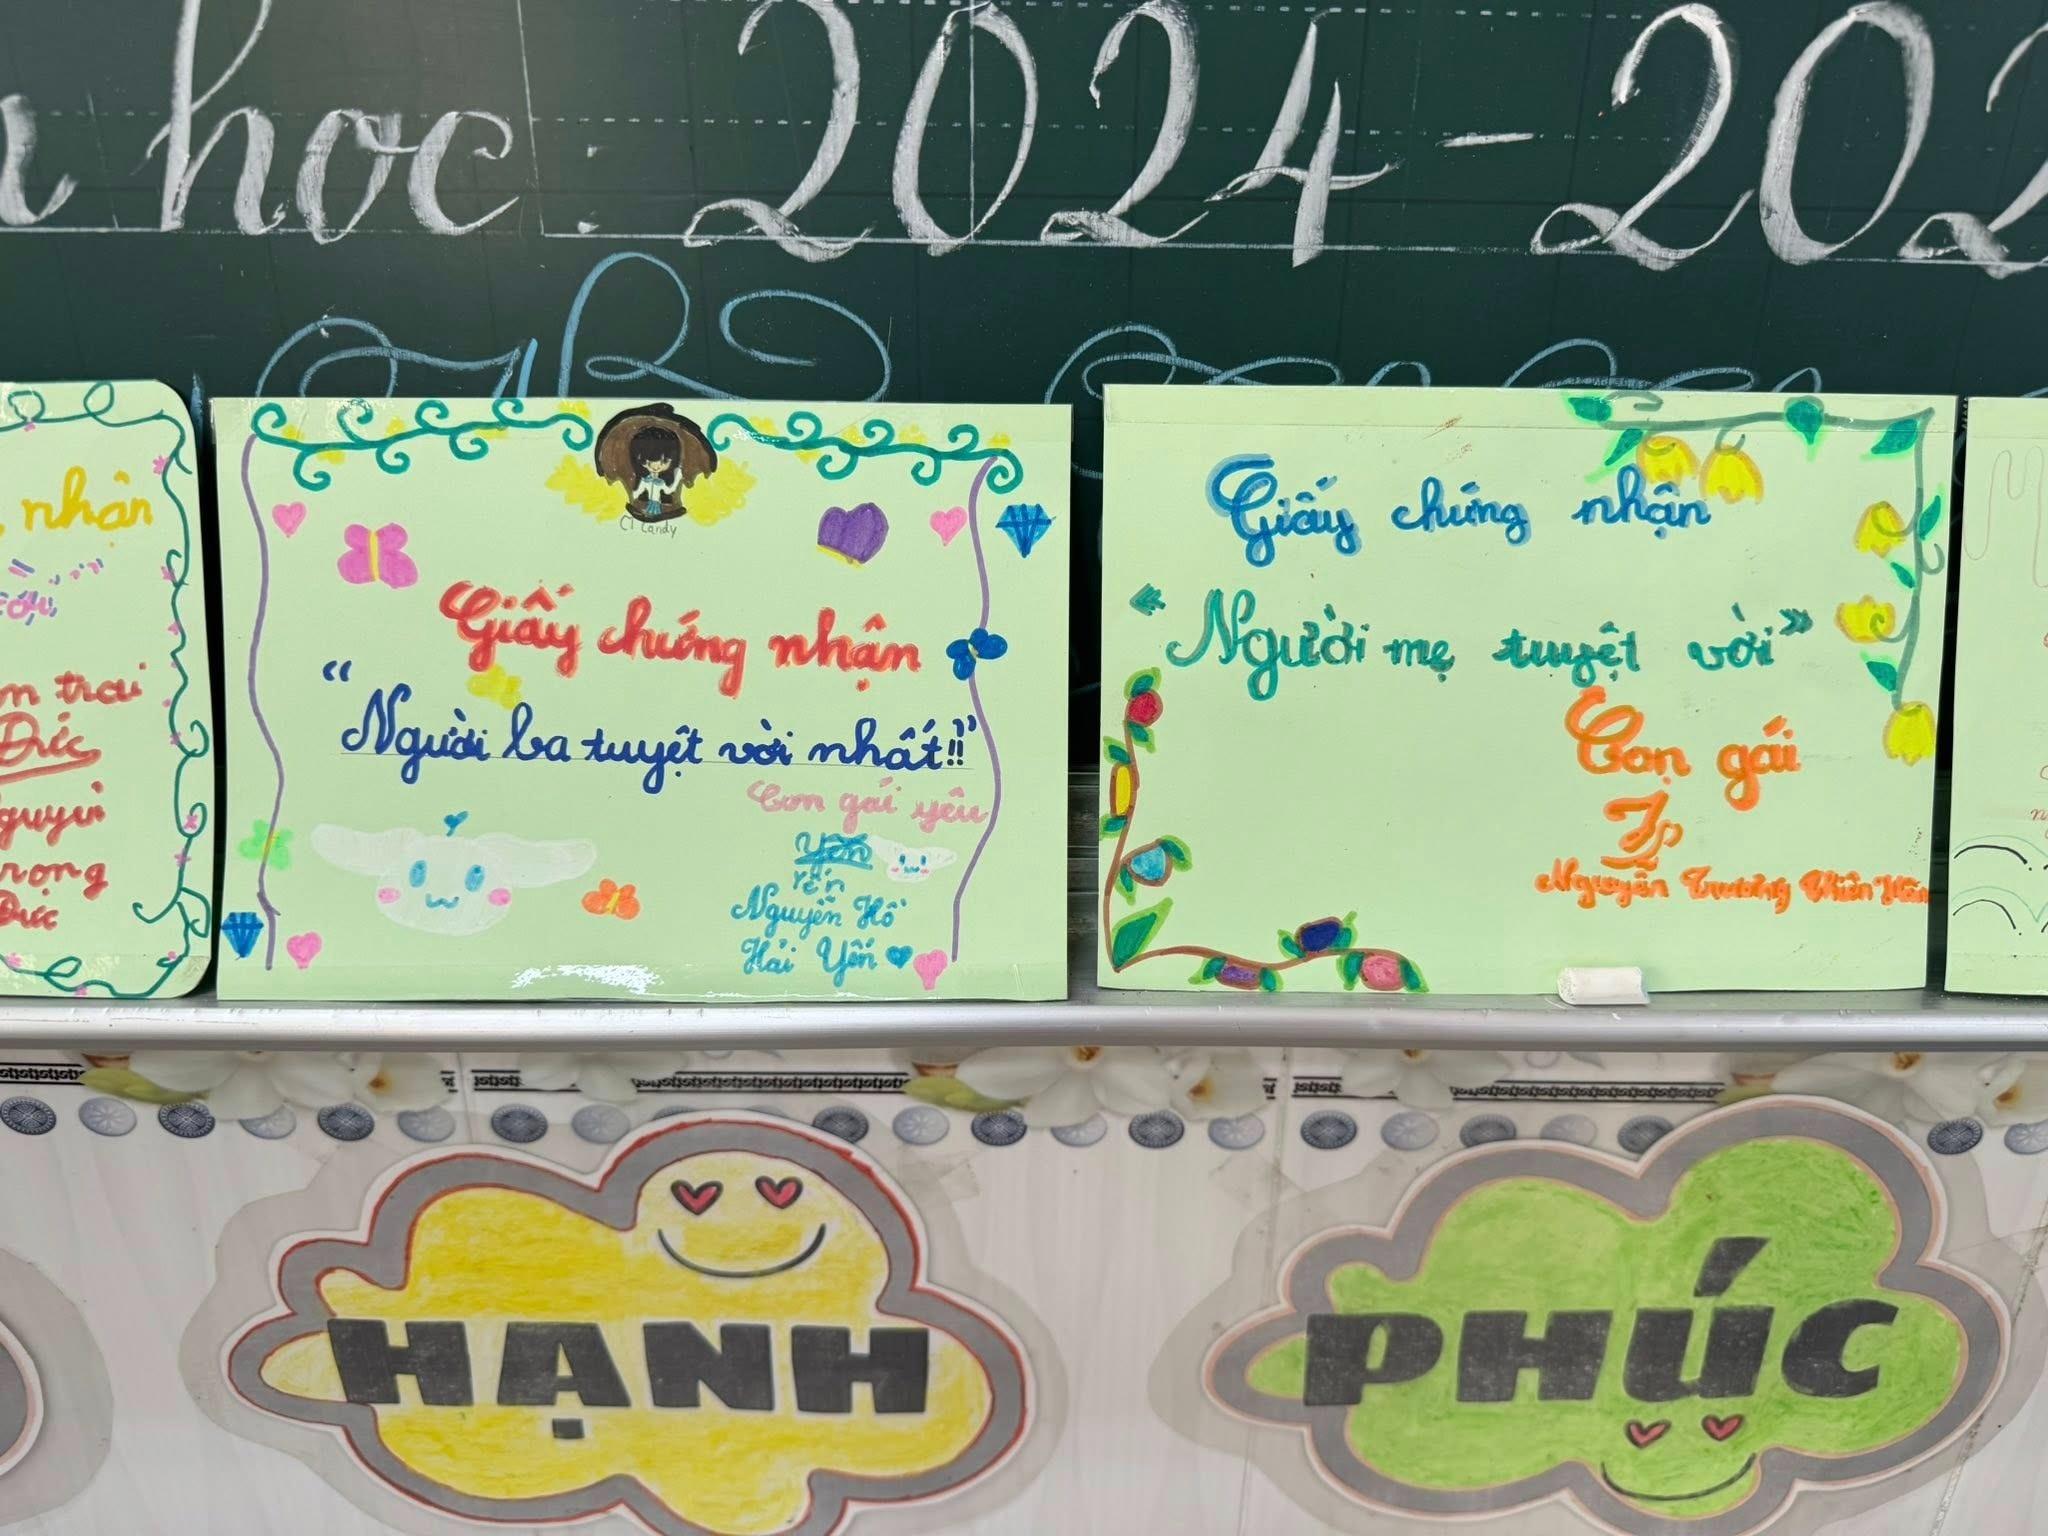 học: 2024-202
nhận
Đức
Đức
Cỉ Candy
Giấy chứng nhận
"Người ba tuyệt vời nhất!!"
Con gái yêu
Yến
Nguyễn Hồ
Hải Yến
Giấy chứng nhận
"Người mẹ tuyệt vời"
Con gái
Nguyễn Trương Thiên Hân
HẠNH
PHÚC